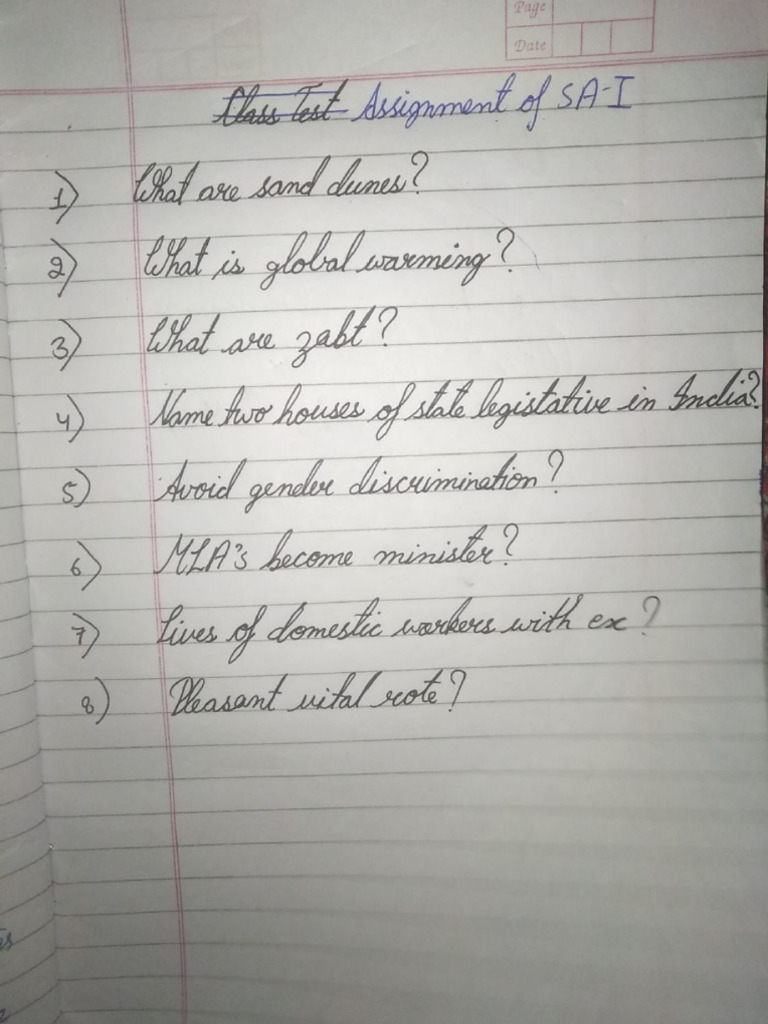 Page
Date
Class Test Assignment of SA-I
1) What are sand dunes?
2) What is global warming?
3) What are zabt?
4) Name two houses of state legistative in India?
5) Avoid gender discrimination?
6) MLA's become minister?
7) Lives of domestic workers with ex?
8) Pleasant vital rote?